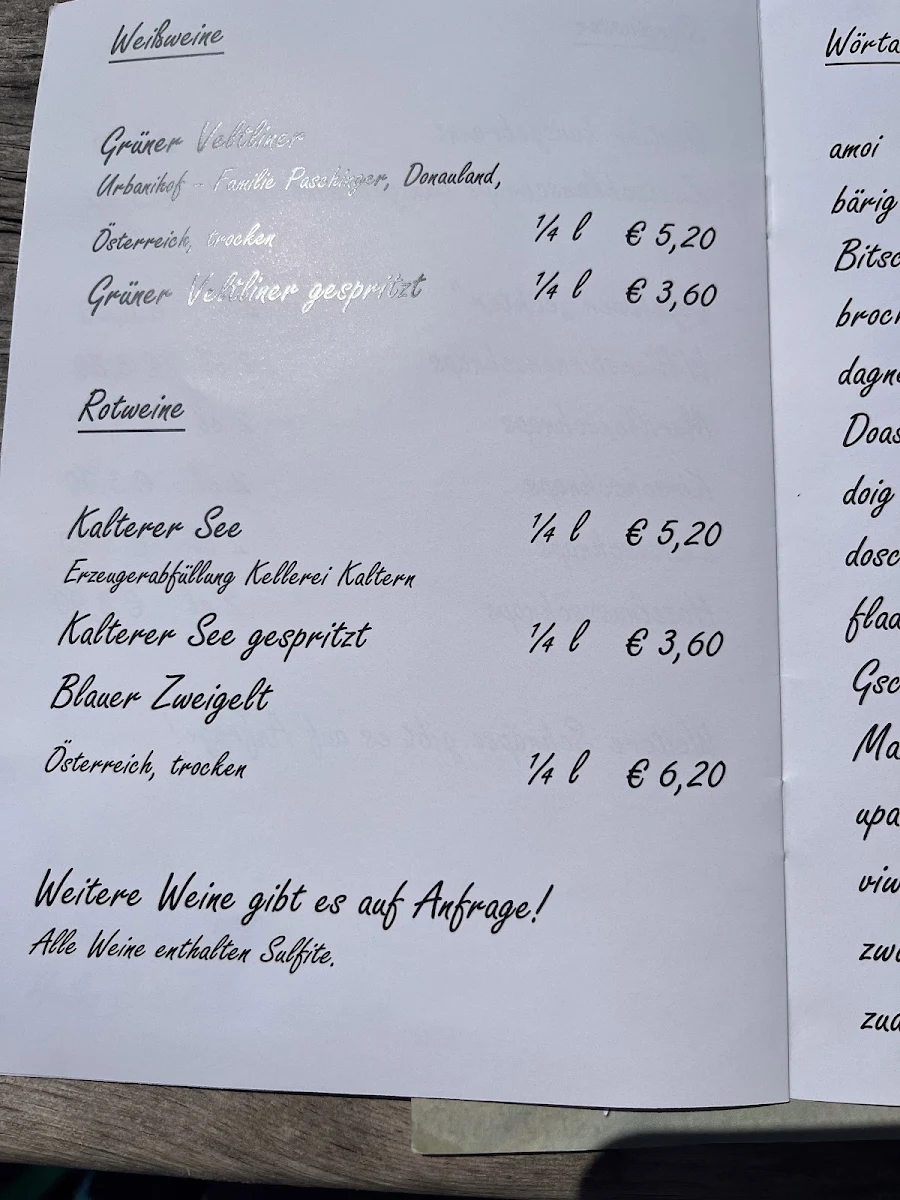 Weißweine
Grüner Veltliner
Urbanihof - Familie Paschinger, Donauland,
Österreich, trocken ¼ l € 5,20
Grüner Veltliner gespritzt ¼ l € 3,60
Rotweine
Kalterer See ¼ l € 5,20
Erzeugerabfüllung Kellerei Kaltern
Kalterer See gespritzt ¼ l € 3,60
Blauer Zweigelt
Österreich, trocken ¼ l € 6,20
Weitere Weine gibt es auf Anfrage!
Alle Weine enthalten Sulfite.
amoi
bärig
doig